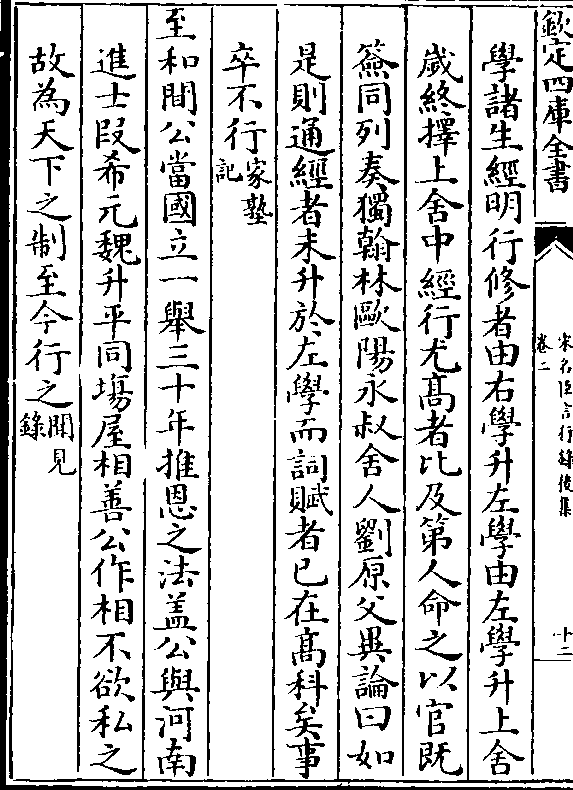 欽定四庫全書
宋名臣言行録後集
卷二
十二
學諸生經明行修者由右學升左學由左學升上舍
歲終擇上舍中經行尤髙者比及第人命之以官既
僉同列奏獨翰林歐陽永叔舍人劉原父異論曰如
是則通經者未升於左學而詞賦者已在髙科矣事
卒不行家塾
記
至和間公當國立一舉三十年推恩之法盖公與河南
進士段希元魏升平同塲屋相善公作相不欲私之
故為天下之制至今行之聞見
錄